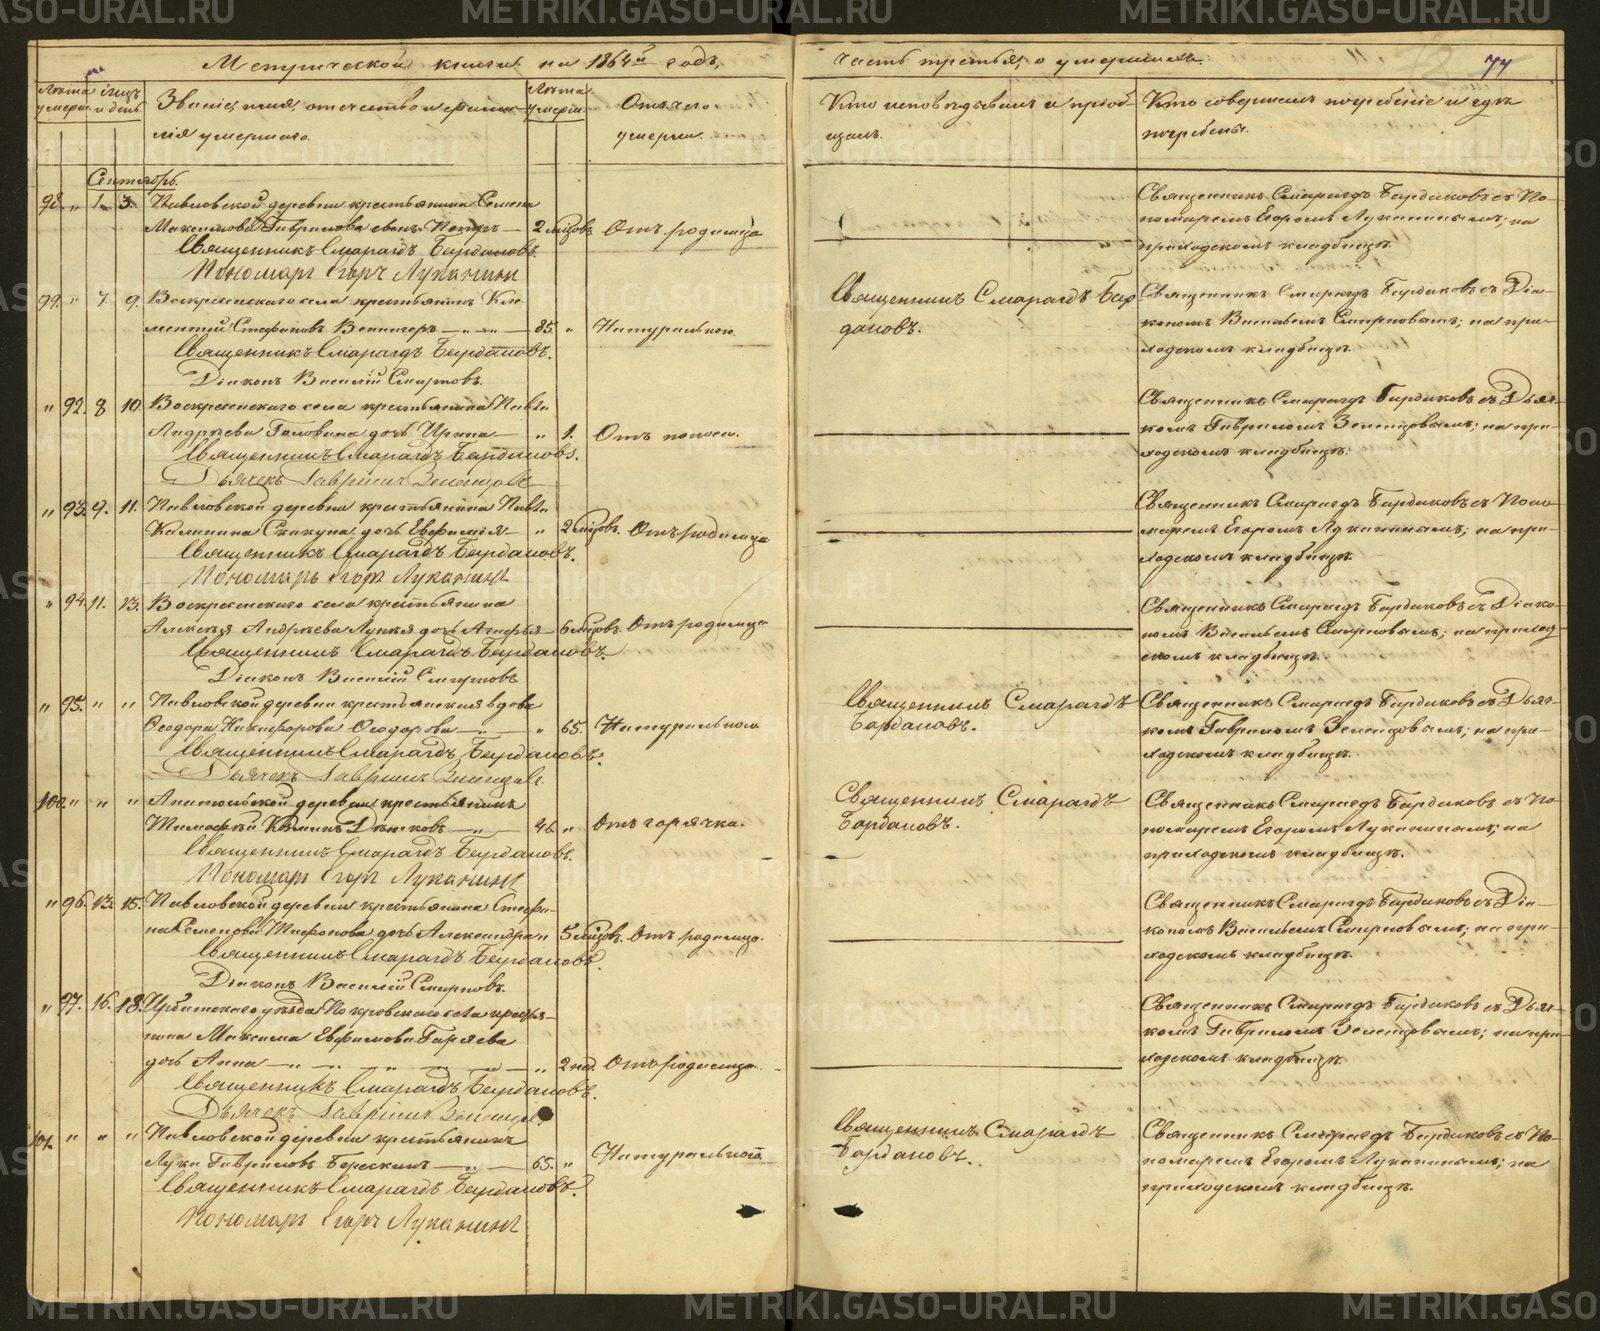 Метрической книги на 1864й годъ,
часть третья, о умершихъ.
77
Лѣта умерш.
м҃цъ и день
Званіе, имя, отчество и фами-
лія умершаго.
Лѣта умерш.
Отъ чего умерли.
Кто исповѣдывалъ и пріоб-
щалъ.
Кто совершалъ погребеніе и гдѣ
погребены.
Сентябрь.
98. " 1. 3. Павловской деревни крестьянина Семена
Максимова Гаврилова сынъ Петръ — 2 мѣсяцовъ Отъ родимца
Священникъ Смарагдъ Бардаковъ.
Пономарь Егоръ Луканинъ
Священникъ Смарагдъ Бардаковъ съ По-
номаремъ Егоромъ Луканинымъ; на
приходскомъ кладбищѣ.
99. " 7. 9. Воскресенскаго села крестьянинъ Кле-
ментій Стефановъ — " — 85. " Натурально.
Священникъ Смарагдъ Бардаковъ.
Діаконъ Василій Смирновъ.
Священникъ Смарагдъ Бар-
даковъ.
Священникъ Смарагдъ Бардаковъ съ Діа-
кономъ Васильемъ Смирновымъ; на при-
ходскомъ кладбищѣ.
" 92. 8 10. Воскресенскаго села крестьянина Павла
Андреева Головина дочь Ирина — " 1. Отъ поноса.
Священникъ Смарагдъ Бардаковъ.
Дьячекъ Гавріилъ Зеленцовъ
Священникъ Смарагдъ Бардаковъ съ Дьяч-
комъ Гавриломъ Зеленцовымъ; на при-
ходскомъ кладбищѣ.
" 93. 9. 11. Павловской деревни крестьянина Павла
Калинина Скакуна дочь Евфимія — " 2 мѣсяцовъ. Отъ родимца
Священникъ Смарагдъ Бардаковъ.
Пономарь Егоръ Луканинъ
Священникъ Смарагдъ Бардаковъ съ Поно-
маремъ Егоромъ Луканинымъ; на при-
ходскомъ кладбищѣ.
" 94. 11. 13. Воскресенскаго села крестьянина
Алексѣя Андреева дочь Агафья — 6 мѣсяцовъ. Отъ родимца
Священникъ Смарагдъ Бардаковъ.
Діаконъ Василій Смирновъ
Священникъ Смарагдъ Бардаковъ съ Діако-
номъ Васильемъ Смирновымъ; на приход-
скомъ кладбищѣ.
" 95. " " Павловской деревни крестьянская вдова
Ѳеодора Никифорова Ѳеодорова — " 65. Натурально
Священникъ Смарагдъ Бардаковъ.
Дьячекъ Гавріилъ Зеленцовъ.
Священникъ Смарагдъ
Бардаковъ.
Священникъ Смарагдъ Бардаковъ съ Дьяч-
комъ Гавриломъ Зеленцовымъ; на при-
ходскомъ кладбищѣ.
100. " " " деревни крестьянинъ
Тимофей — " — 46 " Отъ горячки.
Священникъ Смарагдъ Бардаковъ.
Пономарь Егоръ Луканинъ
Священникъ Смарагдъ
Бардаковъ.
Священникъ Смарагдъ Бардаковъ съ По-
номаремъ Егоромъ Луканинымъ; на
приходскомъ кладбищѣ.
" 96. 13. 15. Павловской деревни крестьянина Стефа-
на Семенова дочь Александра " 5 мѣсяцовъ. Отъ родимца.
Священникъ Смарагдъ Бардаковъ.
Діаконъ Василій Смирновъ.
Священникъ Смарагдъ Бардаковъ съ Діа-
кономъ Васильемъ Смирновымъ; на при-
ходскомъ кладбищѣ.
" 97. 16. 18. Ирбитскаго уѣзда Покровскаго села кресть-
янина Максима Евфимова Горяева
дочь Анна — " — " 2 нед. Отъ родимца.
Священникъ Смарагдъ Бардаковъ.
Дьячекъ Гавріилъ Зеленцовъ
Священникъ Смарагдъ Бардаковъ съ Дьяч-
комъ Гавриломъ Зеленцовымъ; на при-
ходскомъ кладбищѣ.
101. " " " Павловской деревни крестьянинъ
Лука Гавриловъ — " — 65. " Натурально
Священникъ Смарагдъ Бардаковъ.
Пономарь Егоръ Луканинъ
Священникъ Смарагдъ
Бардаковъ.
Священникъ Смарагдъ Бардаковъ съ По-
номаремъ Егоромъ Луканинымъ; на
приходскомъ кладбищѣ.
METRIKI.GASO-URAL.RU